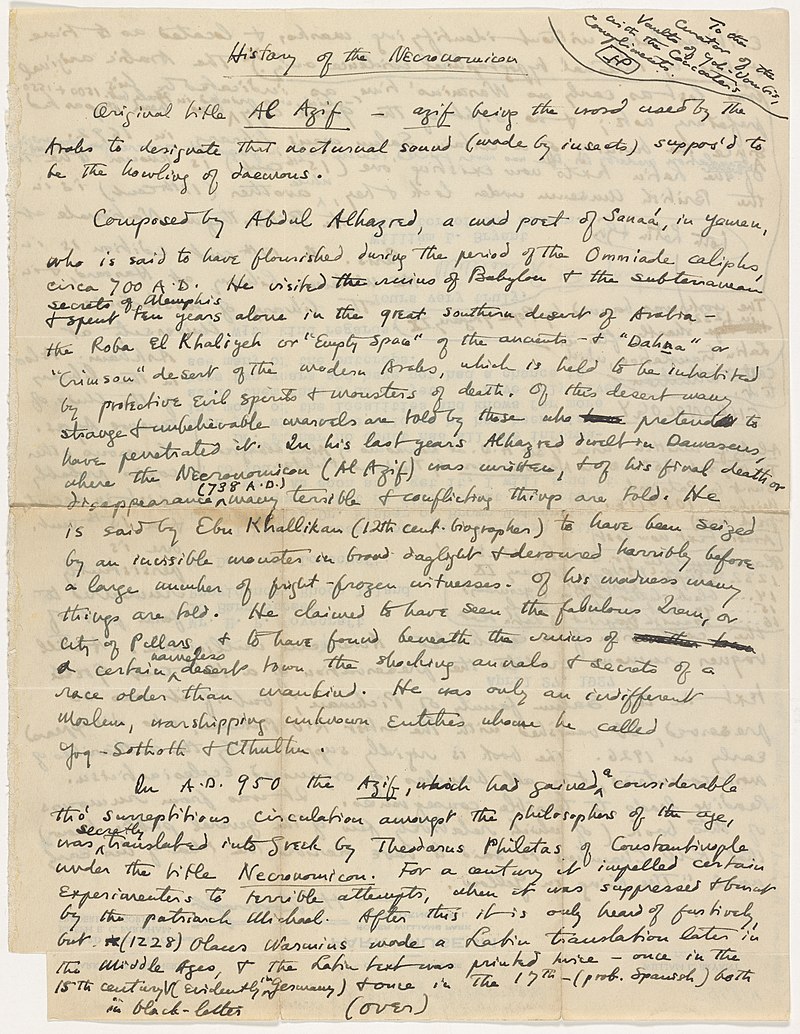 To the
Curator of the
Vaults of Yoh-Vombis,
with the Concoctor's
Compliments.
History of the Necronomicon
Original title Al Azif — azif being the word used by the
Arabs to designate that nocturnal sound (made by insects) suppos'd to
be the howling of daemons.
Composed by Abdul Alhazred, a mad poet of Sanaá, in Yemen,
who is said to have flourished during the period of the Ommiade caliphs,
circa 700 A.D. He visited the ruins of Babylon & the subterranean
secrets of Memphis
& spent ten years alone in the great southern desert of Arabia —
the Roba El Khaliyeh or "Empty Space" of the ancients — & "Dahna" or
"Crimson" desert of the modern Arabs, which is held to be inhabited
by protective evil spirits & monsters of death. Of this desert many
strange & unbelievable marvels are told by those who pretend to
have penetrated it. In his last years Alhazred dwelt in Damascus,
where the Necronomicon (Al Azif) was written, & of his final death or
disappearance (738 A.D.) many terrible & conflicting things are told. He
is said by Ebn Khallikan (12th cent. biographer) to have been seized
by an invisible monster in broad daylight & devoured horribly before
a large number of fright-frozen witnesses. Of his madness many
things are told. He claimed to have seen the fabulous Irem, or
City of Pillars, & to have found beneath the ruins of
a certain nameless desert town the shocking annals & secrets of a
race older than mankind. He was only an indifferent
Moslem, worshipping unknown Entities whom he called
Yog-Sothoth & Cthulhu.
In A.D. 950 the Azif, which had gained a considerable
tho' surreptitious circulation amongst the philosophers of the age,
was secretly translated into Greek by Theodorus Philetas of Constantinople
under the title Necronomicon. For a century it impelled certain
experimenters to terrible attempts, when it was suppressed & burnt
by the patriarch Michael. After this it is only heard of furtively,
but (1228) Olaus Wormius made a Latin translation later in
the Middle Ages, & the Latin text was printed twice — once in the
15th century (evidently in Germany) & once in the 17th — (prob. Spanish) both
in black-letter (over)